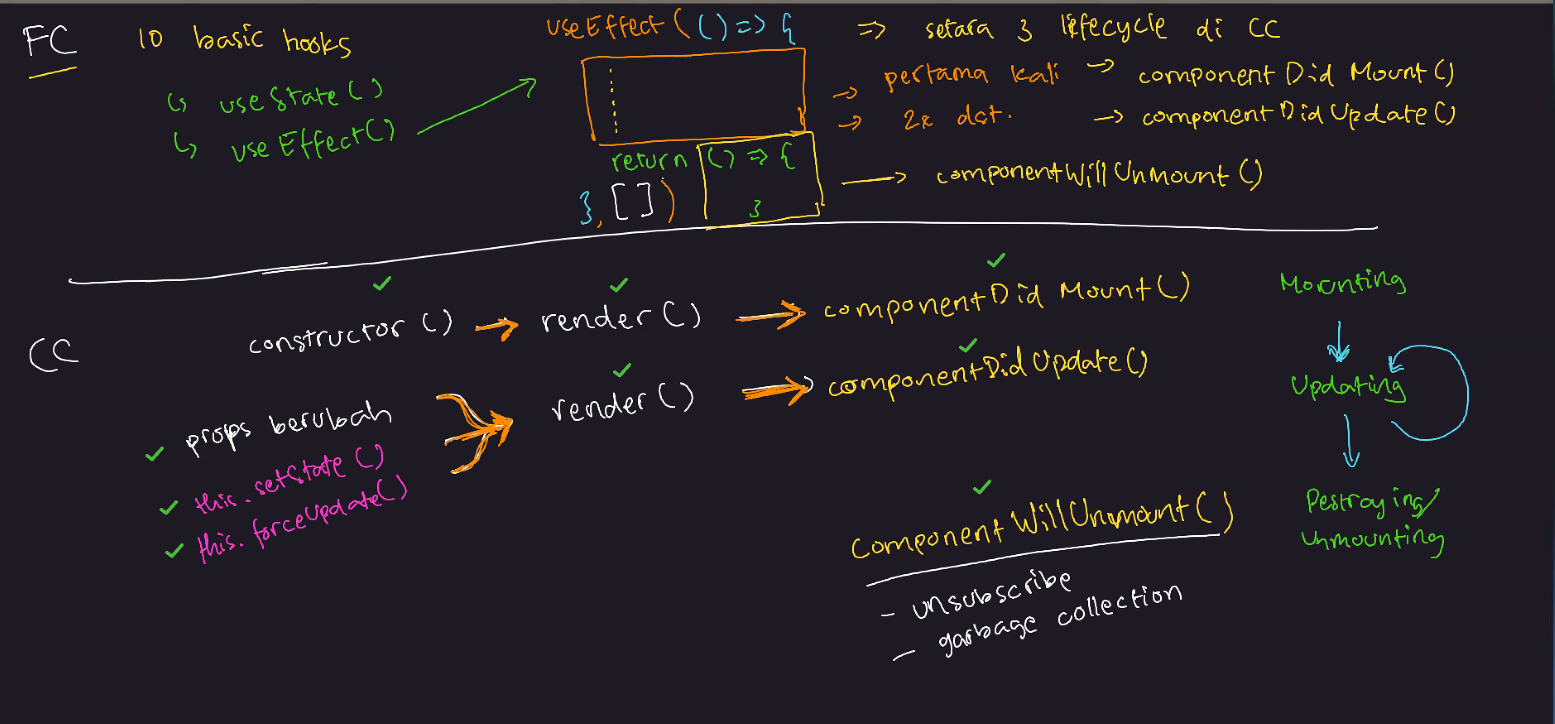 FC 10 basic hooks
↳ useState()
↳ useEffect()
useEffect(() => {
return () => {
}
}, [])
=> setara 3 lifecycle di CC
→ pertama kali → componentDidMount()
→ 2x dst. → componentDidUpdate()
→ componentWillUnmount()
CC
constructor() → render() → componentDidMount()
props berubah
this.setState()
this.forceUpdate()
render() → componentDidUpdate()
componentWillUnmount()
- unsubscribe
- garbage collection
Mounting
Updating
Destroying/
Unmounting